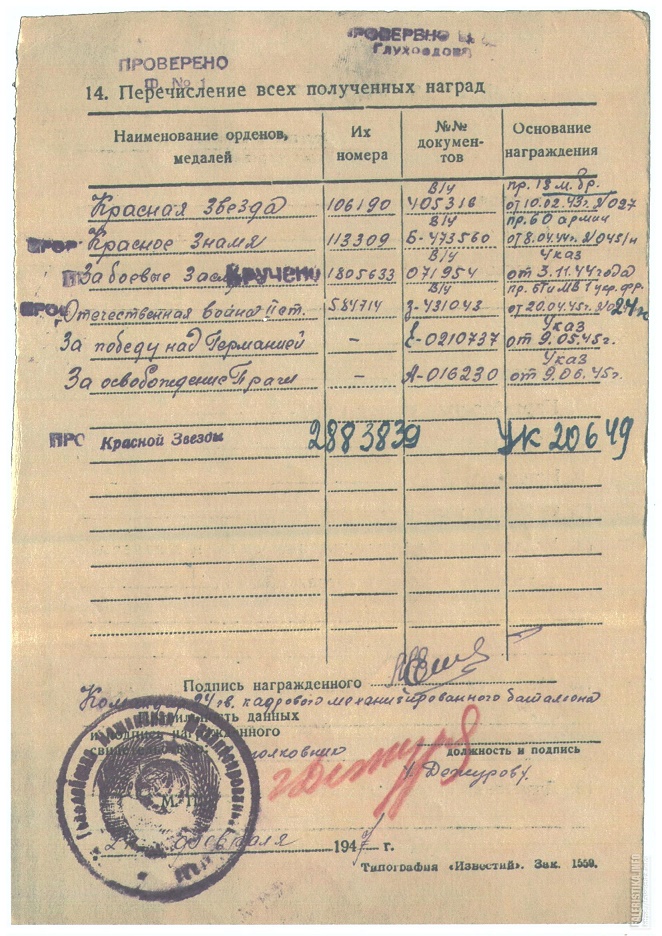 ПРОВЕРЕНО
Ф. № 1
ПРОВЕРЕНО
Глуховдова
14. Перечисление всех полученных наград
Наименование орденов, медалей
Их номера
№№ документов
Основание награждения
Красная Звезда 106190 В/у 405316 пр. 18 м. бр. от 10.02.43г. №027
Красное Знамя 113309 В/у Б-473560 пр. 60 армии от 8.04.44г. №045/н
За боевые Зас Вручено 1805633 В/у 071954 Указ от 3.11.44 года
Отечественная война II ст. 584714 В/у З-431043 от 20.04.45г. 24н
За победу над Германией – Е-0210737 Указ от 9.05.45г.
За освобождение Праги – А-016230 Указ от 9.06.45г.
ПРО Красной Звезды 2883839 УК 206 49
Подпись награжденного
Командир 24 гв. кадрового механизированного баталиона
данных
и подпись награжденного
полковник
должность и подпись
/. Дежурову.
М. П.
февраля 194 г.
Типография «Известий». Зак. 1559.
FALERISTIKA.INFO